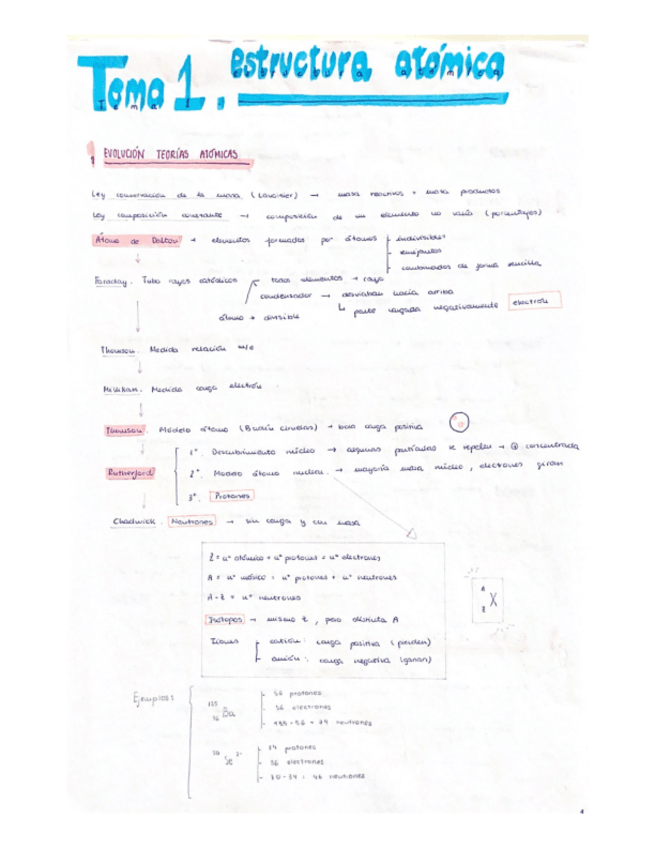 Tema 1. estructura atómica
1 EVOLUCIÓN TEORÍAS ATÓMICAS
Ley conservación de la masa (Lavoisier) → masa reactivos = masa productos
Ley composición constante → composición de un elemento no varía (porcentajes)
Átomo de Dalton → elementos formados por átomos
indivisibles
semejantes
combinados de forma sencilla
Faraday. Tubo rayos catódicos
todos elementos → rayo
condensador → desviaban hacia arriba
↳ parte cargada negativamente electrón
átomo → divisible
Thomson. Medida relación m/e
Millikan. Medida carga electrón
Thomson. Modelo átomo (Budín ciruelas) → bola carga positiva
Rutherford
1º. Descubrimiento núcleo → algunas partículas se repelen → ⊕ concentrada
2º. Modelo átomo nuclear → mayoría masa núcleo, electrones giran
3º. Protones
Chadwick. Neutrones → sin carga y con masa
Z = nº atómico = nº protones = nº electrones
A = nº másico = nº protones + nº neutrones
A - Z = nº neutrones
Isótopos → mismo Z, pero distinta A
Iones
catión: carga positiva (pierden)
anión: carga negativa (ganan)
A
Z X
Ejemplos:
135
56 Ba
56 protones
56 electrones
135 - 56 = 79 neutrones
Se 2-
34 protones
36 electrones
80 - 34 = 46 neutrones
4